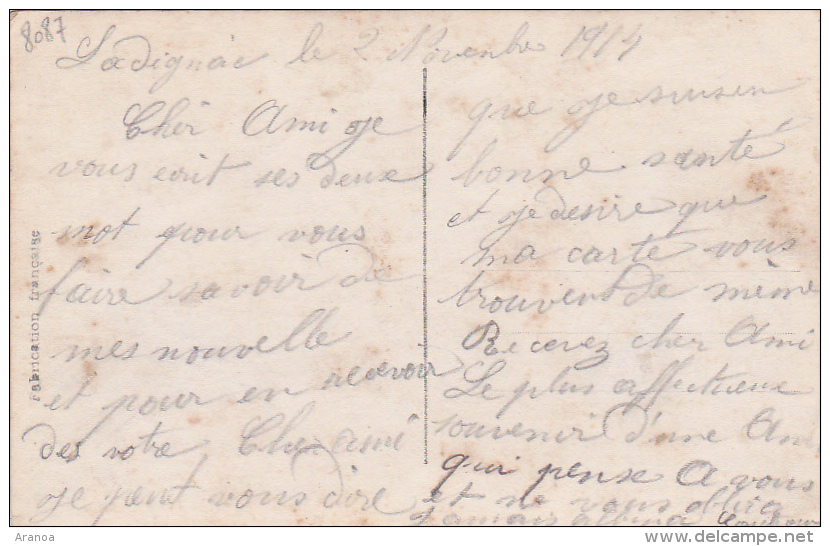 8087
Ladignac le 2 Novembre 1914
Cher Ami je
vous ecrit ses deux
mot pour vous
faire savoir de
mes nouvelle
et pour en recevoir
des votre Cher ami
je peut vous dire
que je suis en
bonne santé
et je desire que
ma carte vous
trouvent de même
Recevez cher Ami
Le plus affectueux
souvenir d'une Ami
qui pense A vous
et ne vous oblira
Jamais
Fabrication française
Aranoa
www.delcampe.net